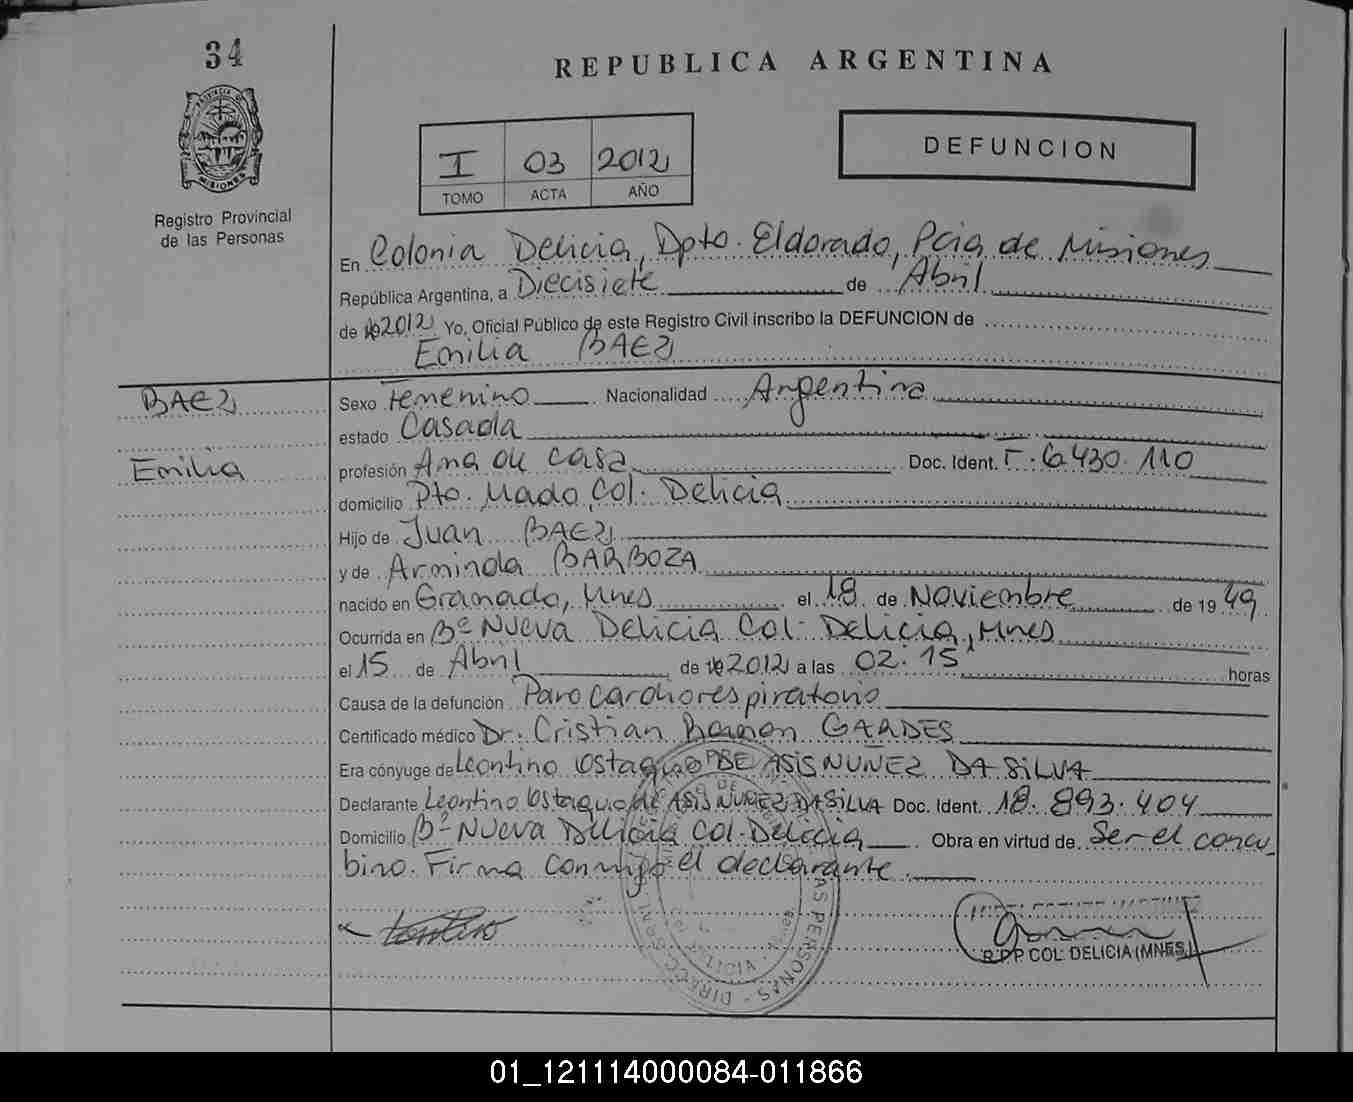 34
REPUBLICA ARGENTINA
PROVINCIA DE
MISIONES
Registro Provincial
de las Personas
I 03 2012
TOMO ACTA AÑO
DEFUNCION
En Colonia Delicia, Dpto. Eldorado, Pcia de Misiones
República Argentina, a Diecisiete de Abril
de 2012 Yo, Oficial Público de este Registro Civil inscribo la DEFUNCION de
Emilia BAEZ
BAEZ
Emilia
Sexo Femenino Nacionalidad Argentina
estado Casada
profesión Ama de casa Doc. Ident. F. 6.430.110
domicilio Pto. Mado, Col. Delicia
Hijo de Juan BAEZ
y de Arminda BARBOZA
nacido en Granado, Mnes el 18 de Noviembre de 19 49
Ocurrida en Bº Nueva Delicia Col. Delicia, Mnes
el 15 de Abril de 2012 a las 02:15 horas
Causa de la defunción Paro cardiorespiratorio
Certificado médico Dr. Cristian Ramon GARDES
Era cónyuge de Leontino Ostaquio DE ASIS NUÑEZ DA SILVA
Declarante Leontino Ostaquio de ASIS NUÑEZ DA SILVA Doc. Ident. 18.893.404
Domicilio Bº Nueva Delicia Col. Delicia Obra en virtud de Ser el concu_
bino. Firma conmigo el declarante.
R.P.P. COL. DELICIA (MNES.)
AS PERSONAS - DIRECC. GRAL.
DELICIA
01_121114000084-011866